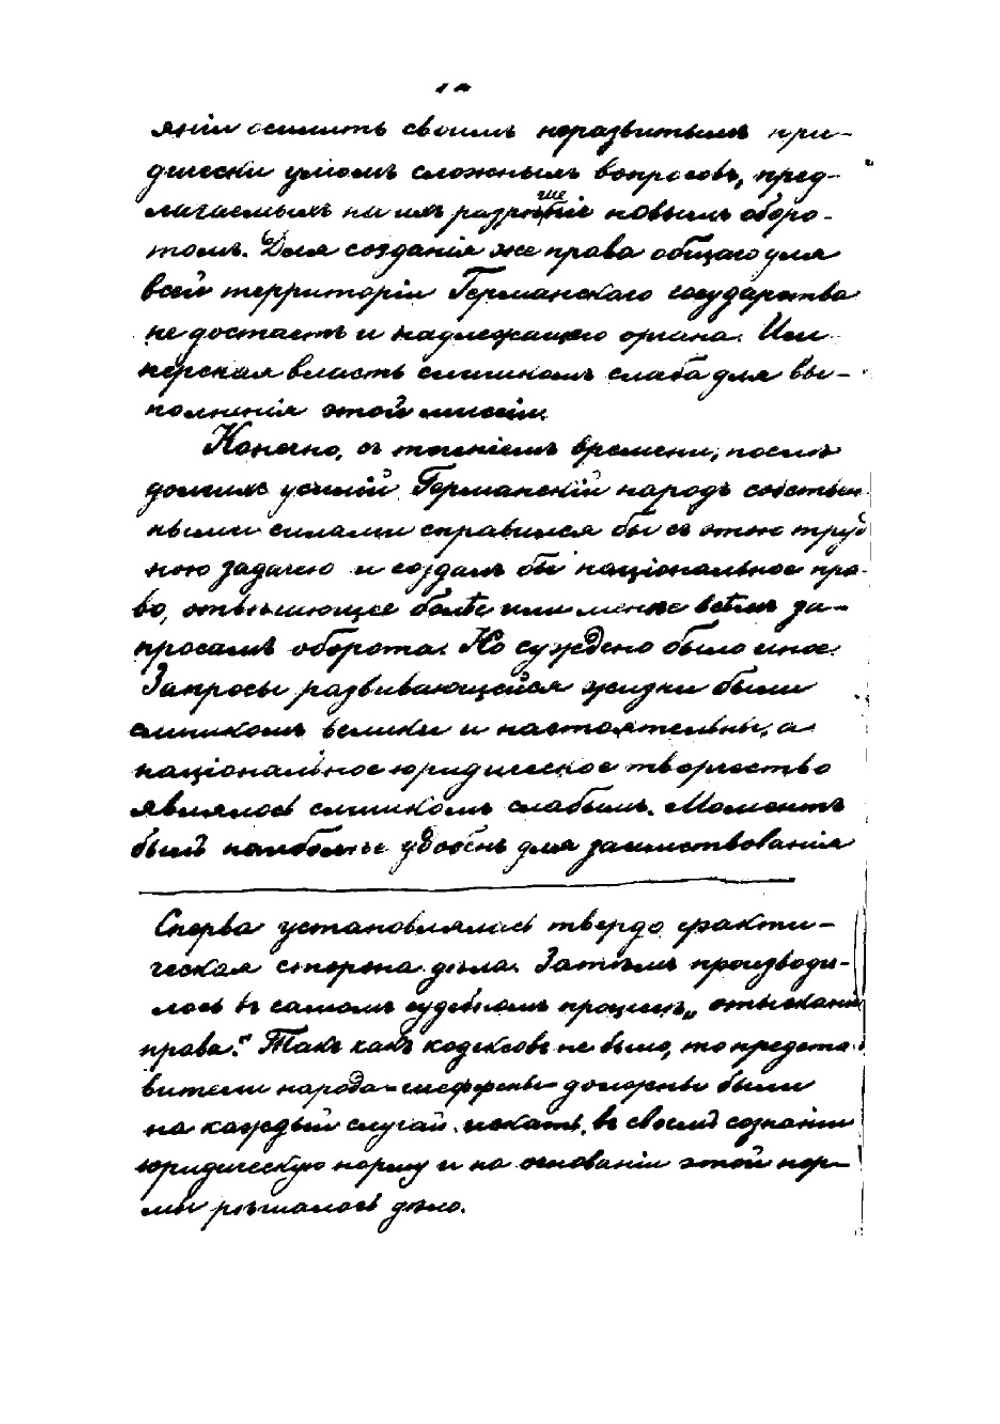 яніи осилить своимъ неразвитымъ юри-
дически умомъ сложныхъ вопросовъ, пред-
лагаемыхъ на ихъ разрѣшеніе новымъ оборо-
томъ. Для созданія же права общаго для
всей территоріи Германскаго государства
не достаетъ и надлежащаго органа. Им-
перская власть слишкомъ слаба для вы-
полненія этой миссіи.
Конечно, съ теченіемъ времени, послѣ
долгихъ усилій Германскій народъ собствен-
ными силами справился бы съ этою труд-
ною задачею и создалъ бы національное пра-
во, отвѣчающее болѣе или менѣе всѣмъ за-
просамъ оборота. Но суждено было иное.
Запросы развивающейся жизни были
слишкомъ велики и настоятельны, а
національное юридическое творчество
являлось слишкомъ слабымъ. Моментъ
былъ наиболѣе удобенъ для заимствованія
Сперва установлялась твердо факти-
ческая сторона дѣла. Затѣмъ производи-
лось въ самомъ судебномъ процессѣ „отысканіе
права." Такъ какъ кодексовъ не было, то предста-
вители народа-шеффены- должны были
на каждый случай искать въ своемъ сознаніи
юридическую норму и на основаніи этой нор-
мы рѣшалось дѣло.